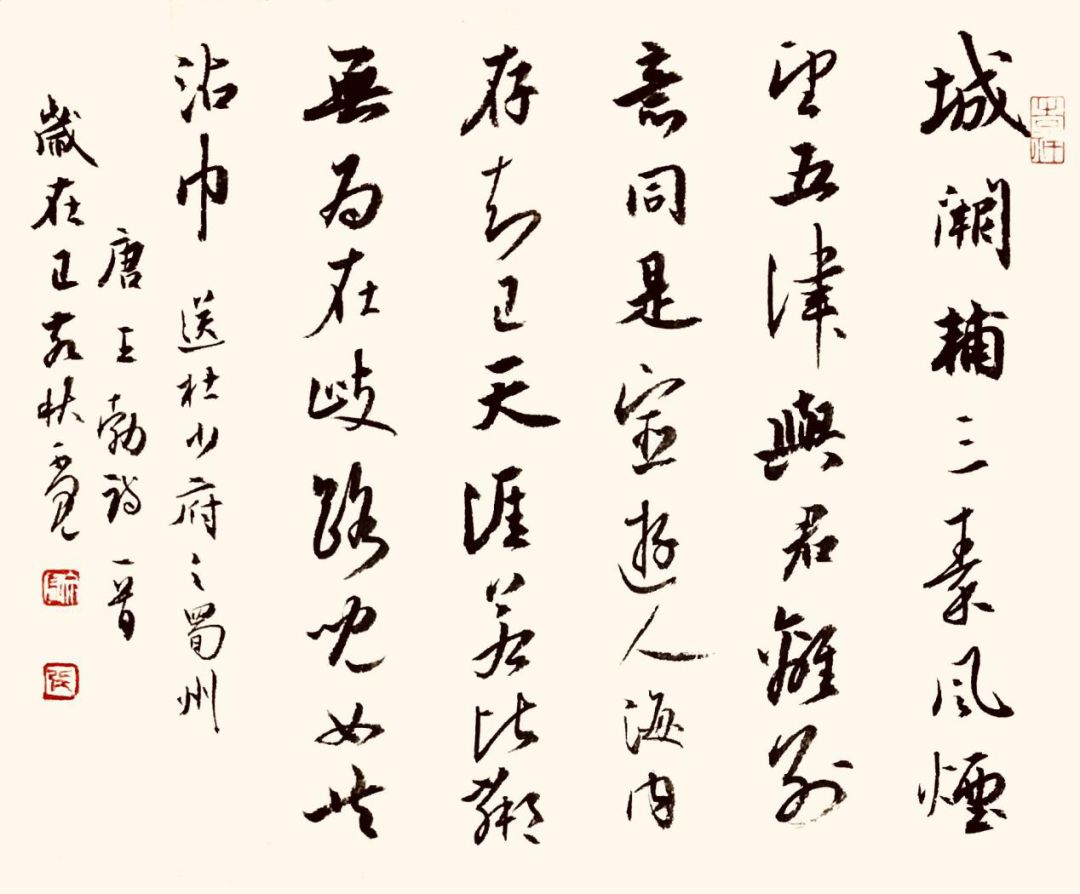 城闕輔三秦風煙
望五津與君離別
意同是宦遊人海内
存知己天涯若比鄰
無為在歧路兒女共
沾巾 送杜少府之蜀州
唐王勃詩一首
歲在己亥秋